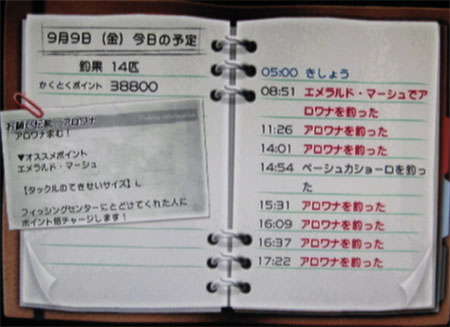 9月9日（金）今日の予定
釣果 14匹
かくとくポイント 38800
アロワナまむ！
▼オススメポイント
エメラルド・マーシュ
【タックルのてきせいサイズ】L
フィッシングセンターにとどけてくれた人に
ポイント倍チャージします！
05:00 きしょう
08:51 エメラルド・マーシュでア
ロワナを釣った
11:26 アロワナを釣った
14:01 アロワナを釣った
14:54 ペーシュカショーロを釣っ
た
15:31 アロワナを釣った
16:09 アロワナを釣った
16:37 アロワナを釣った
17:22 アロワナを釣った